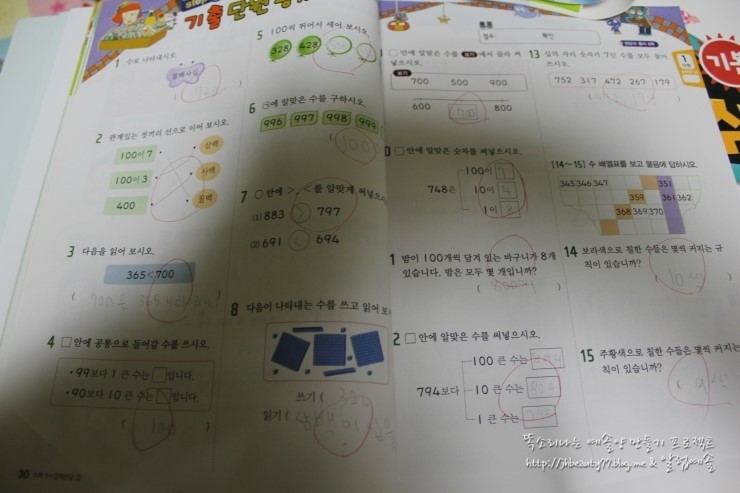 기출 단원
1 수로 나타내시오.
칠백사십
( 740 )
2 관계있는 것끼리 선으로 이어 보시오.
100이 7
100이 3
400
삼백
사백
칠백
3 다음을 읽어 보시오.
365<700
4 □ 안에 공통으로 들어갈 수를 쓰시오.
•99보다 1 큰 수는 □입니다.
•90보다 10 큰 수는 □입니다.
( 100 )
20
5 100씩 뛰어서 세어 보시오.
328 428
6 ㉠에 알맞은 수를 구하시오.
996 997 998 999
7 ○ 안에 >, <를 알맞게 써넣으시오.
(1) 883 > 797
(2) 691 < 694
8 다음이 나타내는 수를 쓰고 읽어 보
쓰기 (
읽기 (
점수 확인
□ 안에 알맞은 수를 보기 에서 골라 써
넣으시오.
보기
700 500 900
600 700 800
0 □ 안에 알맞은 숫자를 써넣으시오.
748은
100이 7
10이 4
1이 8
1 밤이 100개씩 담겨 있는 바구니가 8개
있습니다. 밤은 모두 몇 개입니까?
2 □ 안에 알맞은 수를 써넣으시오.
794보다
100 큰 수는 894
10 큰 수는 804
1 큰 수는 795
13 십의 자리 숫자가 7인 수를 모두 찾아
쓰시오.
752 317 472 267 179
[14~15] 수 배열표를 보고 물음에 답하시오.
345 346 347 351
359 361 362
368 369 370
14 보라색으로 칠한 수들은 몇씩 커지는 규
칙이 있습니까?
( 10씩
15 주황색으로 칠한 수들은 몇씩 커지는
칙이 있습니까?
( 9씩
1
기본
똑소리나는 예술양 만들기 프로젝트
http://jhbeauty77.blog.me & 알럽예술